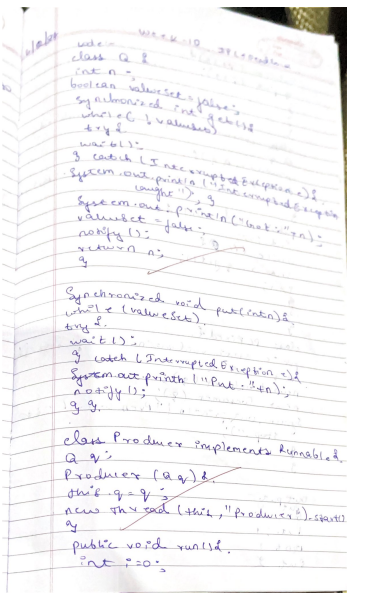 Week-10
code:-
class Q {
int n;
boolean valueset = false;
Synchronized int get() {
while ( ! valueset)
try {
wait();
} catch (InterruptedException e) {
System.out.println ("interruptedException
caught"); }
System.out.println ("Got:"+n);
valueset = false;
notify ();
return n;
}
Synchronized void put(int n) {
while (valueSet).
try {.
wait();
} catch (InterruptedException e) {
System.out.println ("Put:"+n);
notify();
} }.
class Producer implements Runnable {.
Q q;
Producer (Q q) {.
this.q = q;
new Thread (this, "Producer").start()
}
public void run() {.
int i=0;